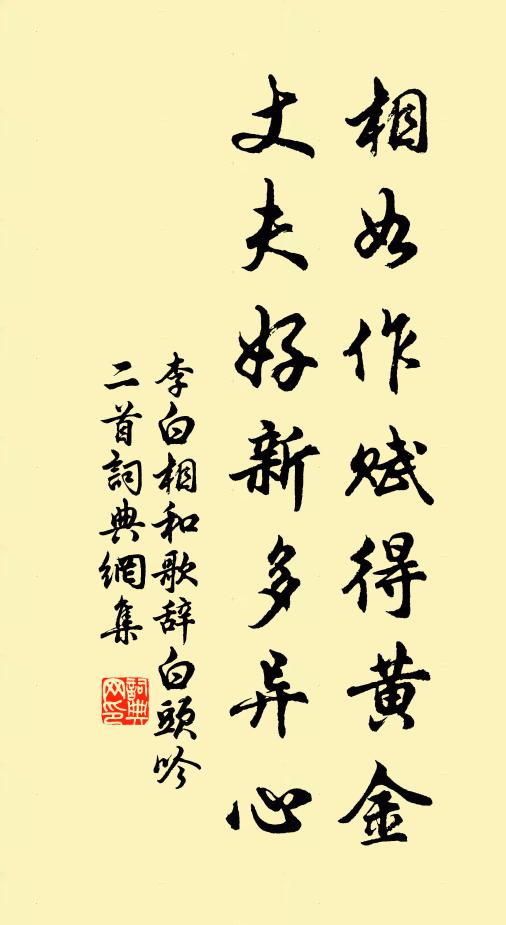 相如作赋得黄金
丈夫好新多异心
李白相和歌辞白頭吟
二首詞典網集
詞典网印